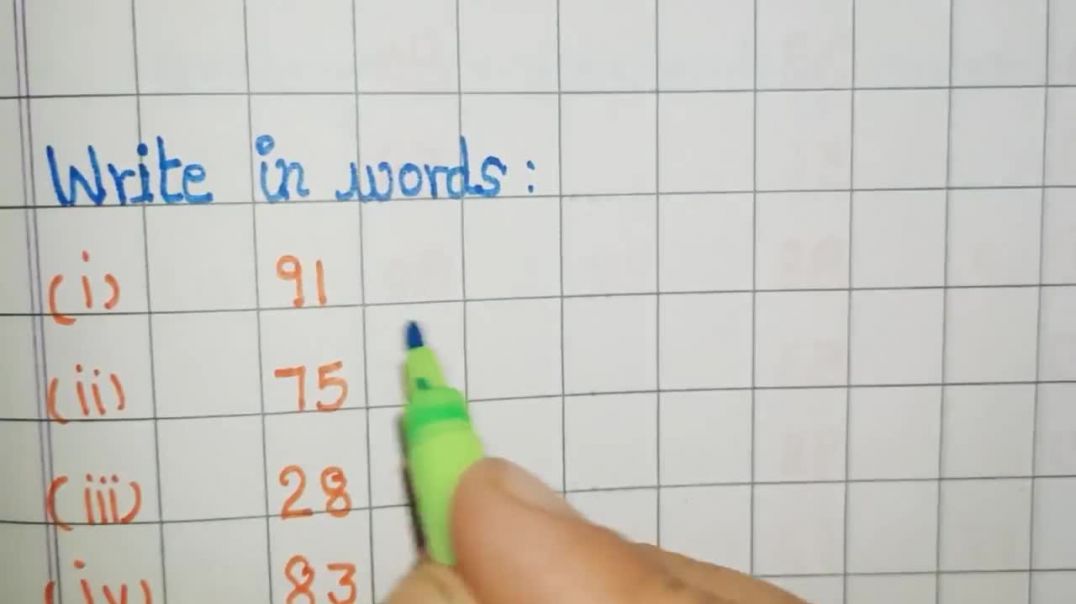 Write in words:
(i) 91
(ii) 75
(iii) 28
(iv) 83